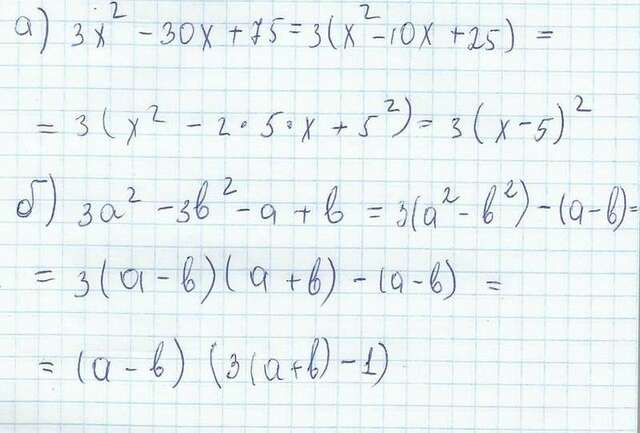 а) 3x² - 30x + 75 = 3(x² - 10x + 25) =
= 3(x² - 2·5·x + 5²) = 3(x - 5)²
б) 3a² - 3b² - a + b = 3(a² - b²) - (a - b) =
= 3(a - b)(a + b) - (a - b) =
= (a - b) (3(a + b) - 1)